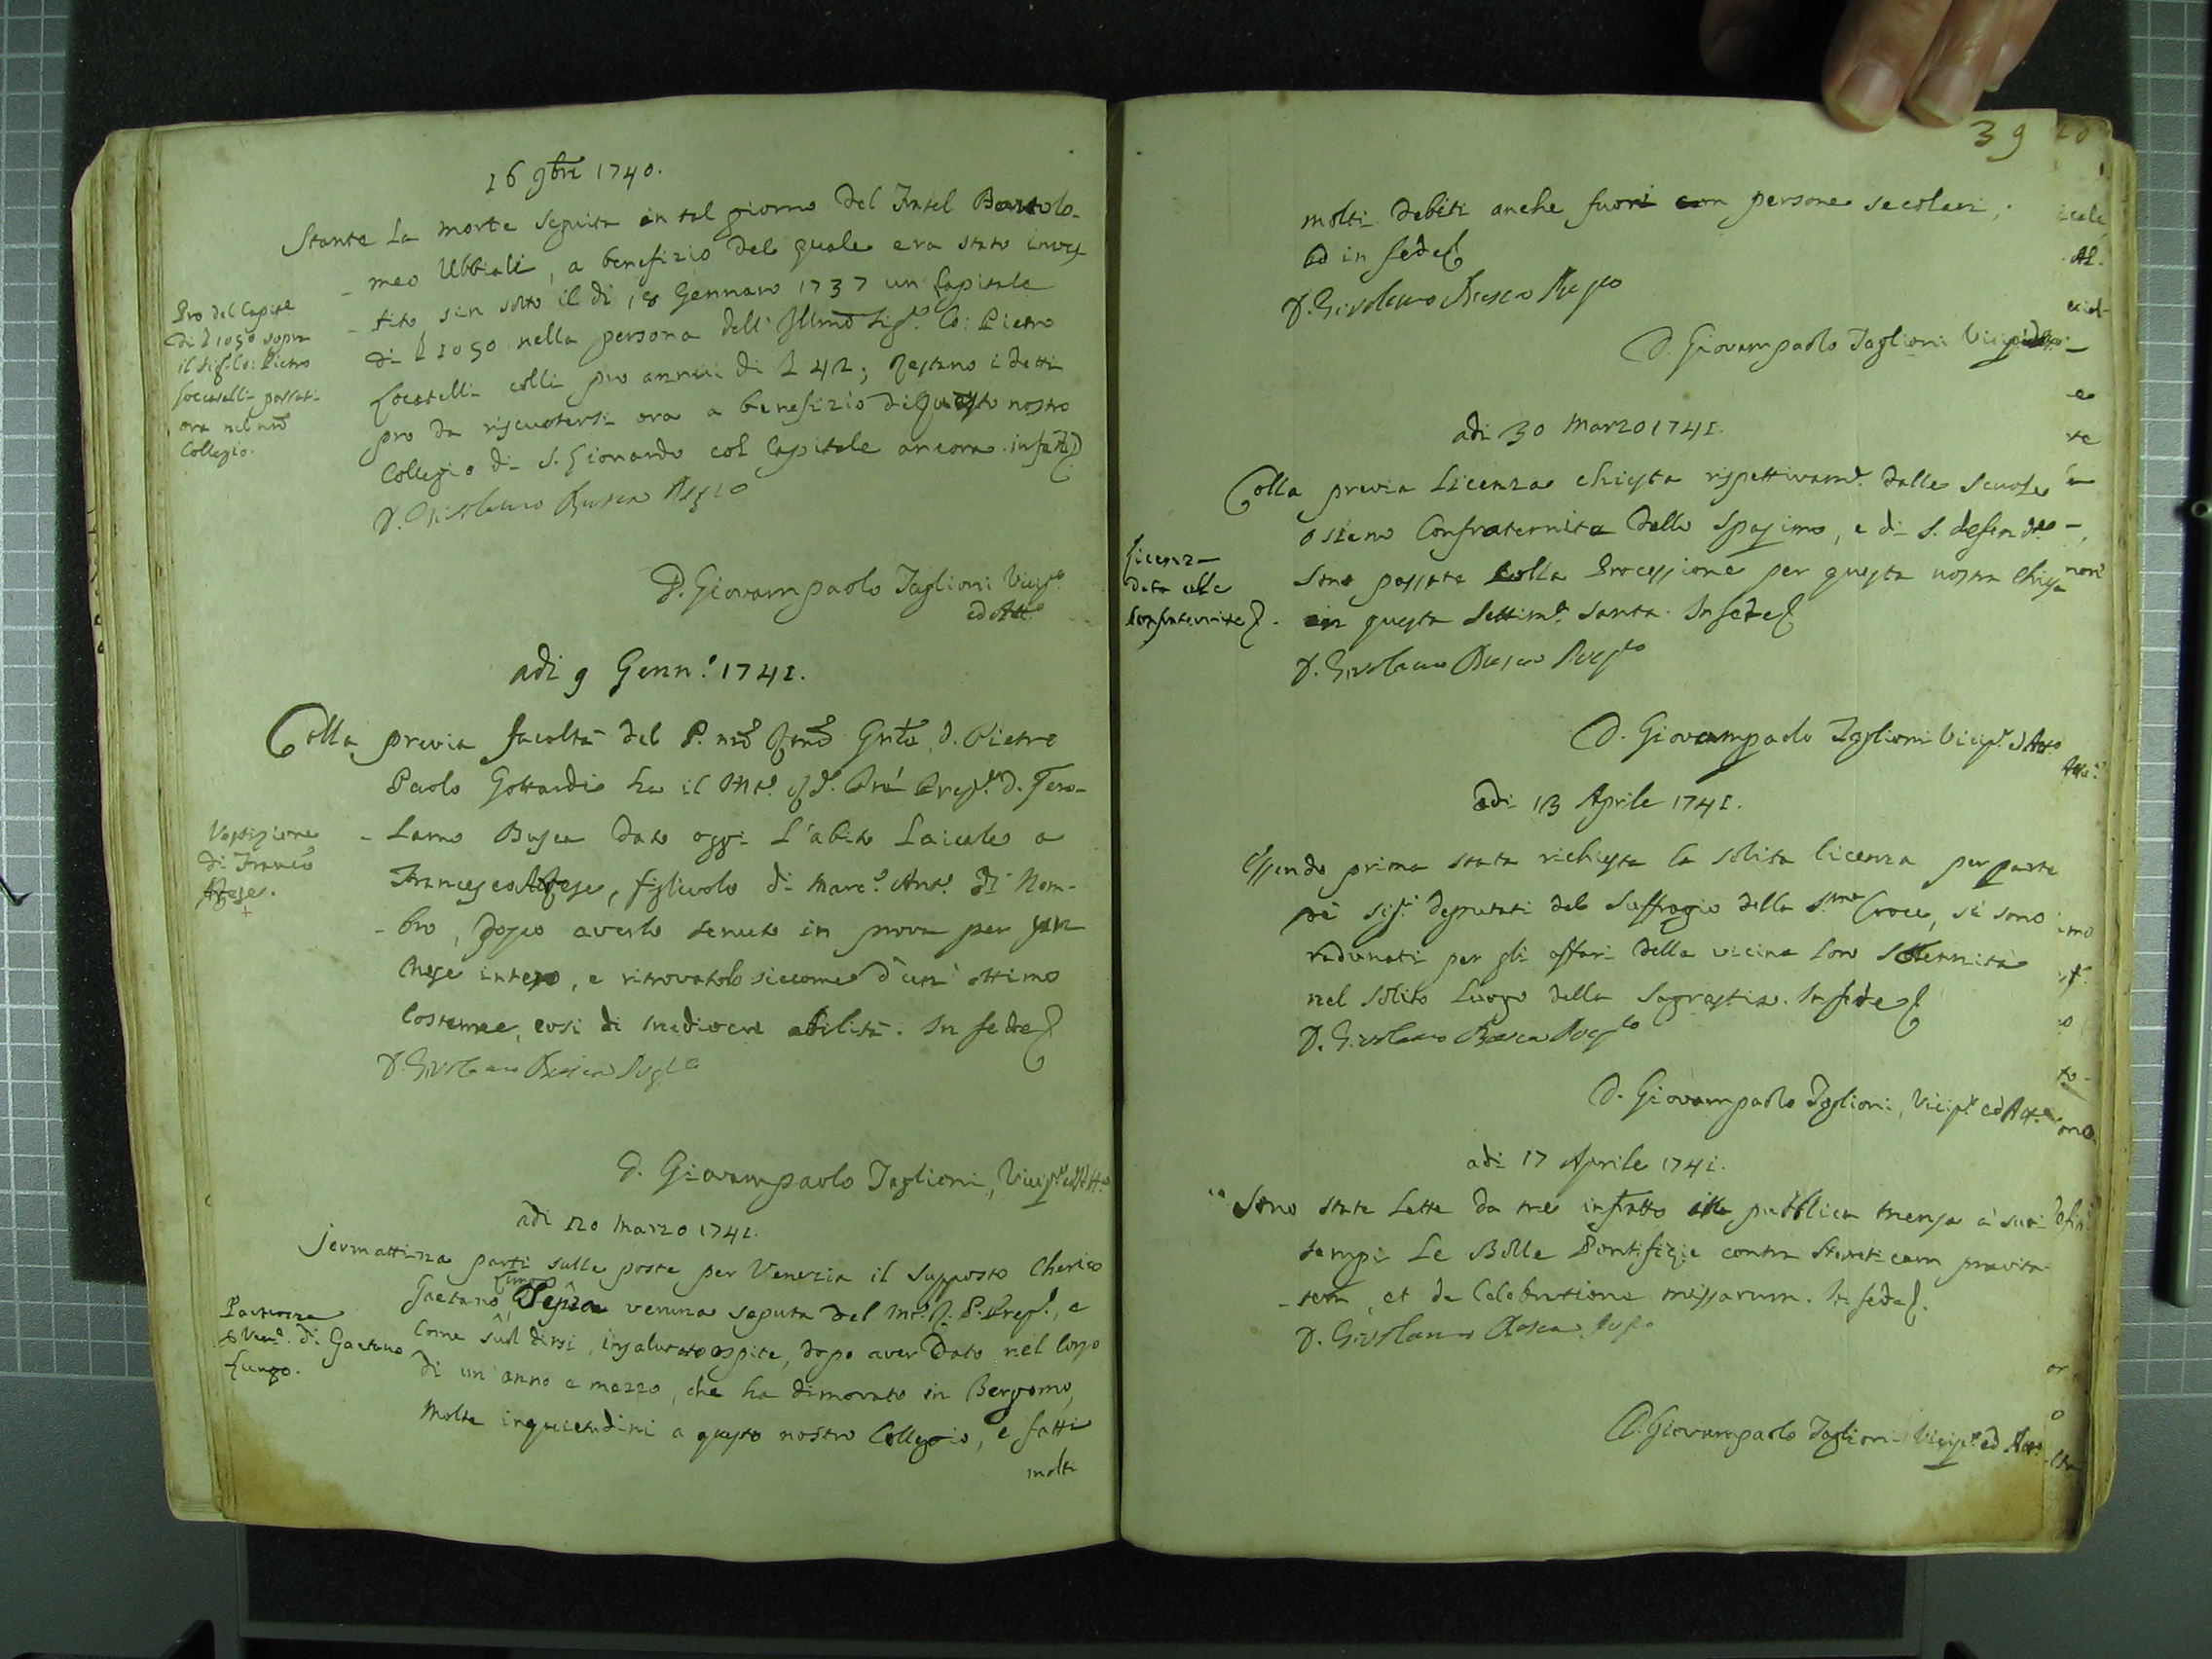 16 9bre 1740.
Stante la morte seguita in tal giorno del Fratel Bartolo-
-meo Ubbiali, a benefizio del quale era stato inves
-tito sin sotto il dì 18 Gennaro 1737 un Capitale
di L 1050 nella persona dell' Illmo Sigr. Co: Pietro
Locatelli colli pro annui di L 42; restano i detti
pro da riscuotersi ora a benefizio di questo nostro
Collegio di S. Lionardo col Capitale ancora. in fede
D. Girolamo Rusca Prepto
D. Giovampaolo Taglioni Vicepo
ed Atto
Pro del Capitle
di L 1050 sopra
il Sigr. Co: Pietro
Loccatelli passati
ora nel nro
Collegio.
adì 9 Genn.o 1741.
Colla previa facoltà del P. nro Rmo Gnle D. Pietro
Paolo Gottardi ha il Mto. Rdo. Prepto. D. Gero-
-lamo Busca dato oggi l'abito Laicale a
Francesco, figlivolo di Marc.o Ant.o di Nem-
-bro, dopo averlo tenuto in prova per un
Mese intero, e ritrovatolo siccome d'un' ottimo
Costume, così di mediocre abilità. In fede
D. Girolamo Rusca Prepto
Vestizione
di Franco
D. Giovampaolo Taglioni, Vicepo ed Atto
adì 20 Marzo 1741.
Jermattina partì sulle poste per Venezia il supposto Cherico
Lungo
Gaetano, senza veruna saputa del Mto. R. P. Prepo., e
come suol dirsi, insalutato ospite, dopo aver dato nel corso
di un' anno e mezzo, che ha dimorato in Bergomo,
molte inquietudini a questo nostro Collegio, e fatti
molti
Partenza
di Gaetano
Lungo.
39
molti debiti anche fuori con persone secolari;
ed in fede
D. Girolamo Rusca Prepto
D. Giovampaolo Taglioni
adì 30 Marzo 1741.
Colla previa Licenza chiesta rispettivamte. dalle Scuole
osieno Confraternita dello Spasimo, e di S. defendte
sono passate colla Processione per questa nostra Chiesa
in questa Settima. Santa. In fede
D. Girolamo Rusca Prepto
Licenza
data alle
Confraternite
D. Giovampaolo Taglioni Vicepo. ed Atto
adì 13 Aprile 1741.
Essendo prima stata richiesta la solita licenza per parte
de' Sigri deputati del Suffragio della Sma Croce, si sono
radunati per gli affari della vicina loro Solennità
nel solito luogo della Sagrestia. In fede
D. Girolamo Rusca Prepto
D. Giovampaolo Taglioni, Vicepo ed Atto
adì 17 Aprile 1741.
Sono state Lette da me infratto alla pubblica mensa a' suoi
tempi le Bolle Pontifizie contra hereticam pravita-
-tem, et de Celebratione missarum. In fede.
D. Girolamo Rusca Prepo
D. Giovampaolo Taglioni Vicepo ed Atto